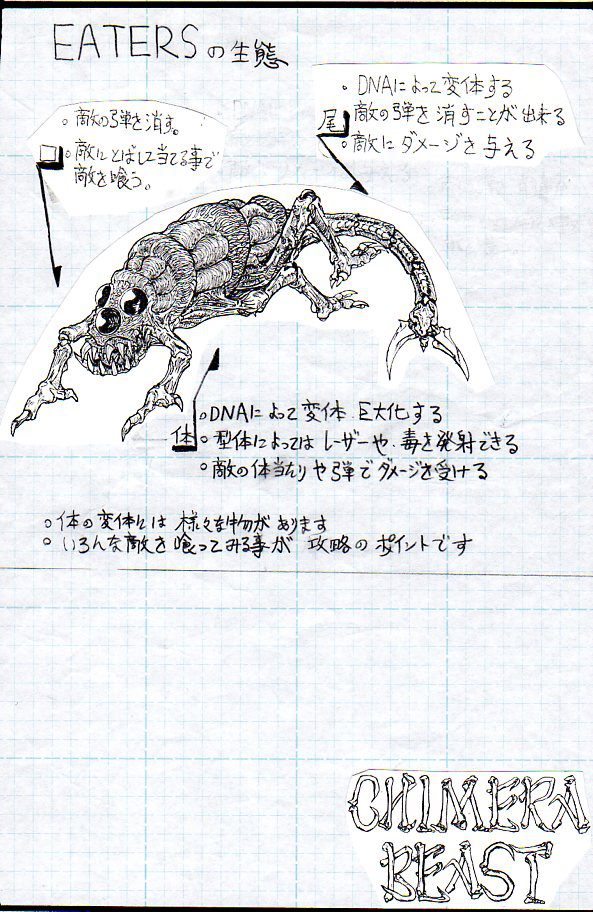 EATERSの生態
。DNAによって変体する
尾 敵の弾を消すことが出来る
。敵にダメージを与える
。敵の弾を消す。
口 。敵にとばして当てる事で
敵を喰う。
。DNAによって変体 巨大化する
体 。型体によってはレーザーや、毒を発射できる
。敵の体当たりや弾でダメージを受ける
。体の変体には様々な物があります
。いろんな敵を喰ってみる事が 攻略のポイントです
CHIMERA
BEAST